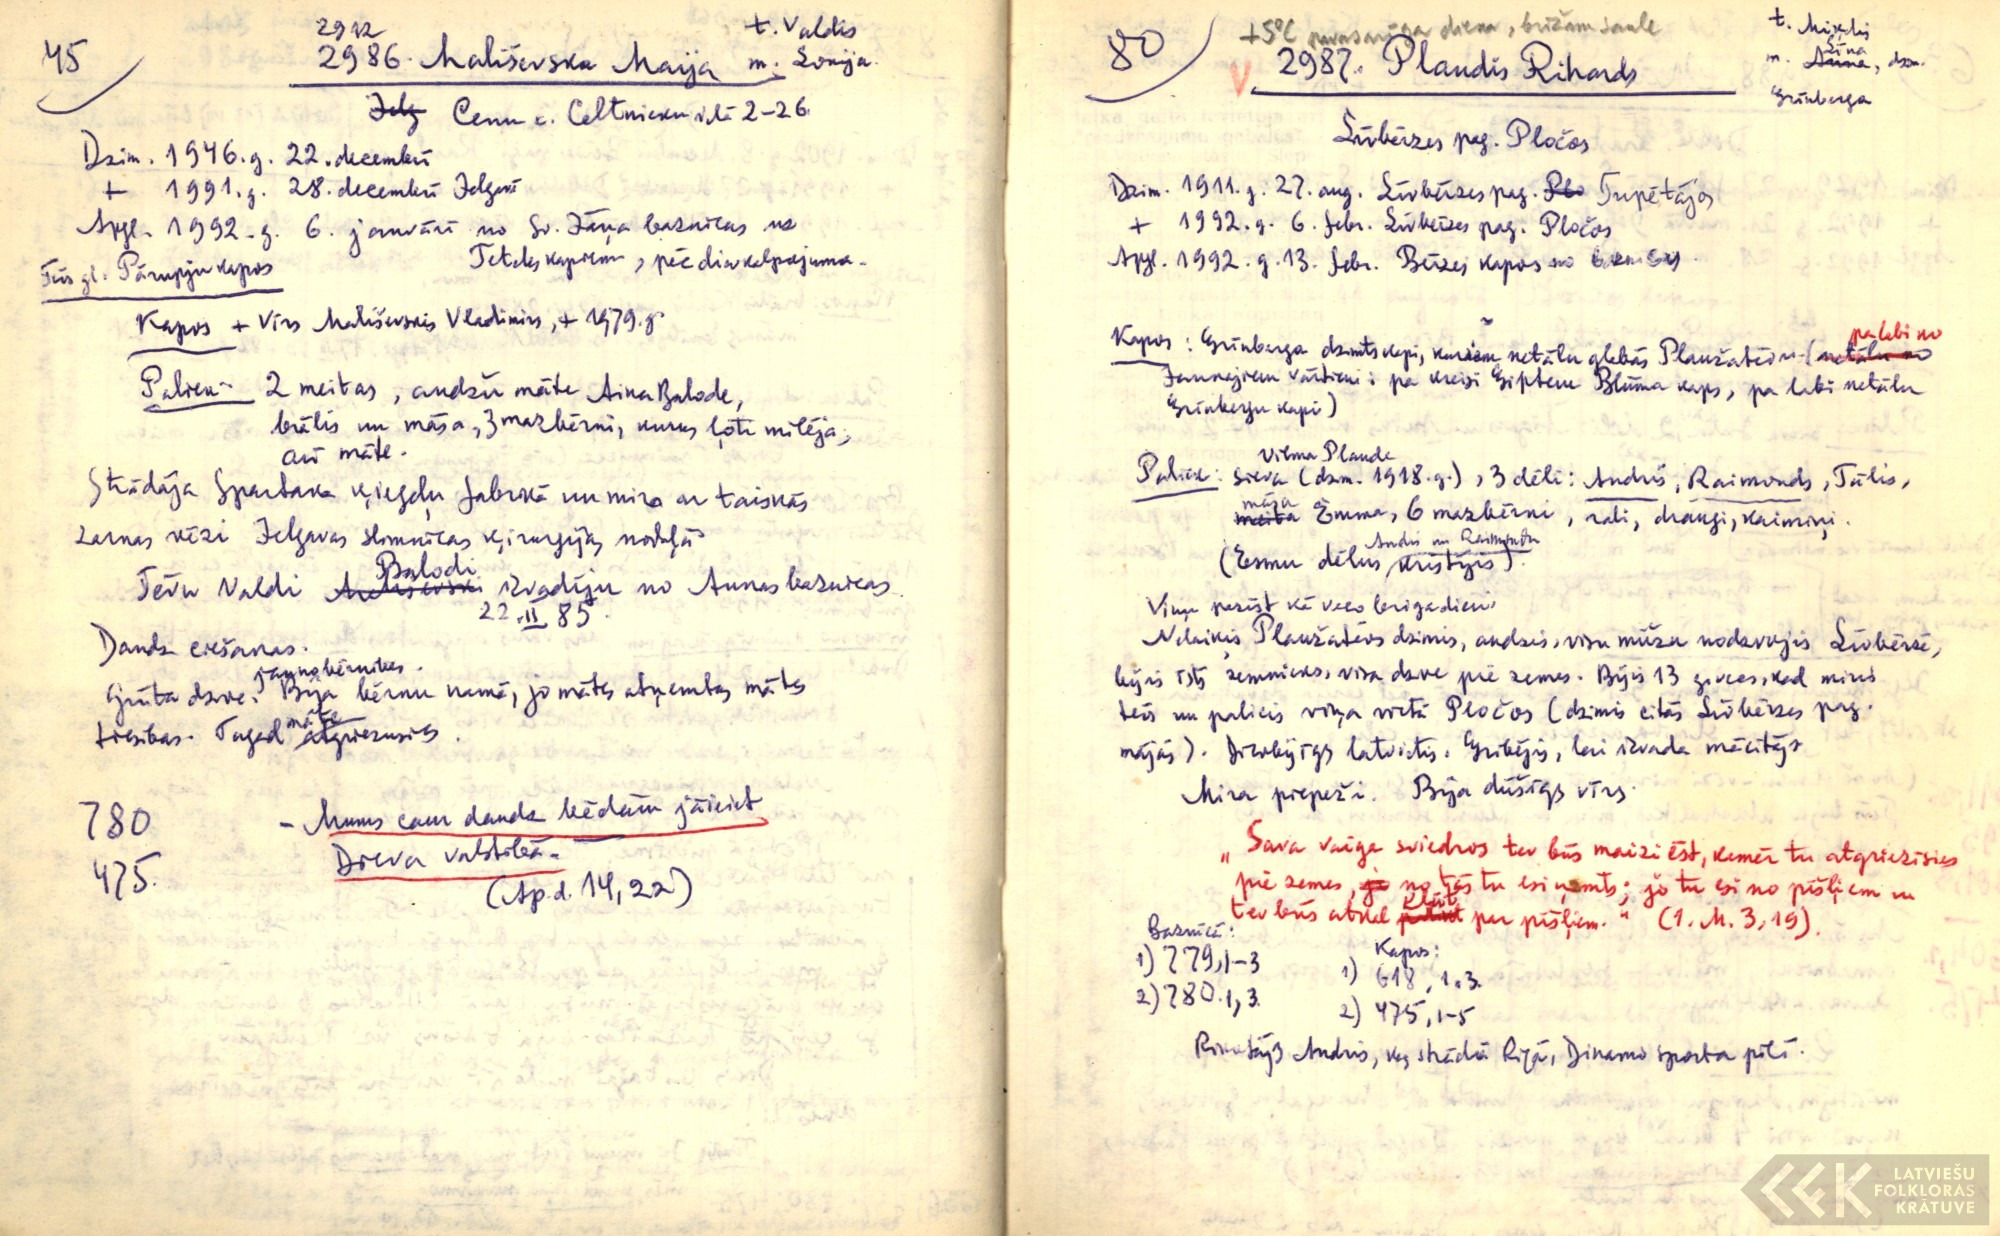 45
2912
2986. Mališevska Marija
t. Valdis
m. Lonija.
Jelg Cenu c. Celtnieku ielā 2-26
Dzim. 1946.g. 22. decembrī
+ 1991.g. 28. decembrī Jelgavā
Apgl. 1992.g. 6. janvārī no Sv. Jāņa baznīcas uz
Teteles kapiem, pēc dievkalpojuma.
Tēvs gl. Pārupju kapos
Kapos + Vīrs Mališevskis Vladimirs, + 1979.g.
Paliek - 2 meitas, audžu māte Aina Balode,
brālis un māsa, 3 mazbērni, kurus ļoti mīlēja,
arī māte.
Strādāja Spartaka ķieģeļu fabrikā un mira ar taisnās
zarnas vēzi Jelgavas slimnīcas ķirurģijas nodaļā
Tēvu Valdi Balodi izvadīju no Annas baznīcas
22.II 85.
Daudz ciešanas.
jaunobērnības.
Grūta dzīve. Bija bērnu namā, jo mātei atņemtas mātes
tiesības. Tagad māte atgriezusies.
780
475.
- Mums caur daudz bēdām jāieiet
Dieva valstībā -
(Ap.d. 14,22)
80
+5°C pavasarīga diena, brīžam saule
V 2987. Plaudis Rihards
t. Miķelis
Līna
m. Anna, dzim.
Grünberga
Līvbērzes pag. Pločos
Dzim. 1911.g. 27. aug. Līvbērzes pag. Plo Tupētājos
+ 1992.g. 6. febr. Līvbērzes pag. Pločos
Apgl. 1992.g. 13. febr. Bērzes kapos no baznīcas
pa labi no
Kapos: Grünberga dzimts kapi, kuriem netālu glabās Plaužatēvu - (netālu no
Jaunajiem vārtiem: pa kreisi Blūma kaps, pa labi netālu
Grünbergu kapi)
Vilma Plaude
Paliek: sieva (dzim. 1918.g.), 3 dēli: Andris, Raimonds, Tālis,
māsa
meita Emma, 6 mazbērni, radi, draugi, kaimiņi.
Andri un Raimondu
(Esmu dēlus kristījis).
Viņu pazīst kā veco brigadieri
Nelaiķis Plaužatēvs dzimis, audzis, visu mūžu nodzīvojis Līvbērzē,
bijis īsts zemnieks, visa dzīve pie zemes. Bijis 13 gives, kad miris
tēvs un palicis viņa vietā Pločos (dzimis citās Līvbērzes pag.
mājās). Dievbijīgs latvietis. Gribējis, lai izvada mācītājs
Mira piepeži. Bija dūšīgs vīrs.
„Sava vaiga sviedros tev būs maizi ēst, kamēr tu atgriezīsies
pie zemes, jo no tās tu esi ņemts; jo tu esi no pīšļiem un
kļūt
tev būs atkal palikt par pīšļiem.“ (1. M. 3, 19).
Baznīcā:
1) 779, 1-3
2) 780. 1, 3.
Kapos:
1) 618, 1. 3.
2) 475, 1-5
Rīkotājs Andris, kas strādā Rīgā, Dinamo sporta pilī.
LATVIEŠU
FOLKLORAS
KRĀTUVE